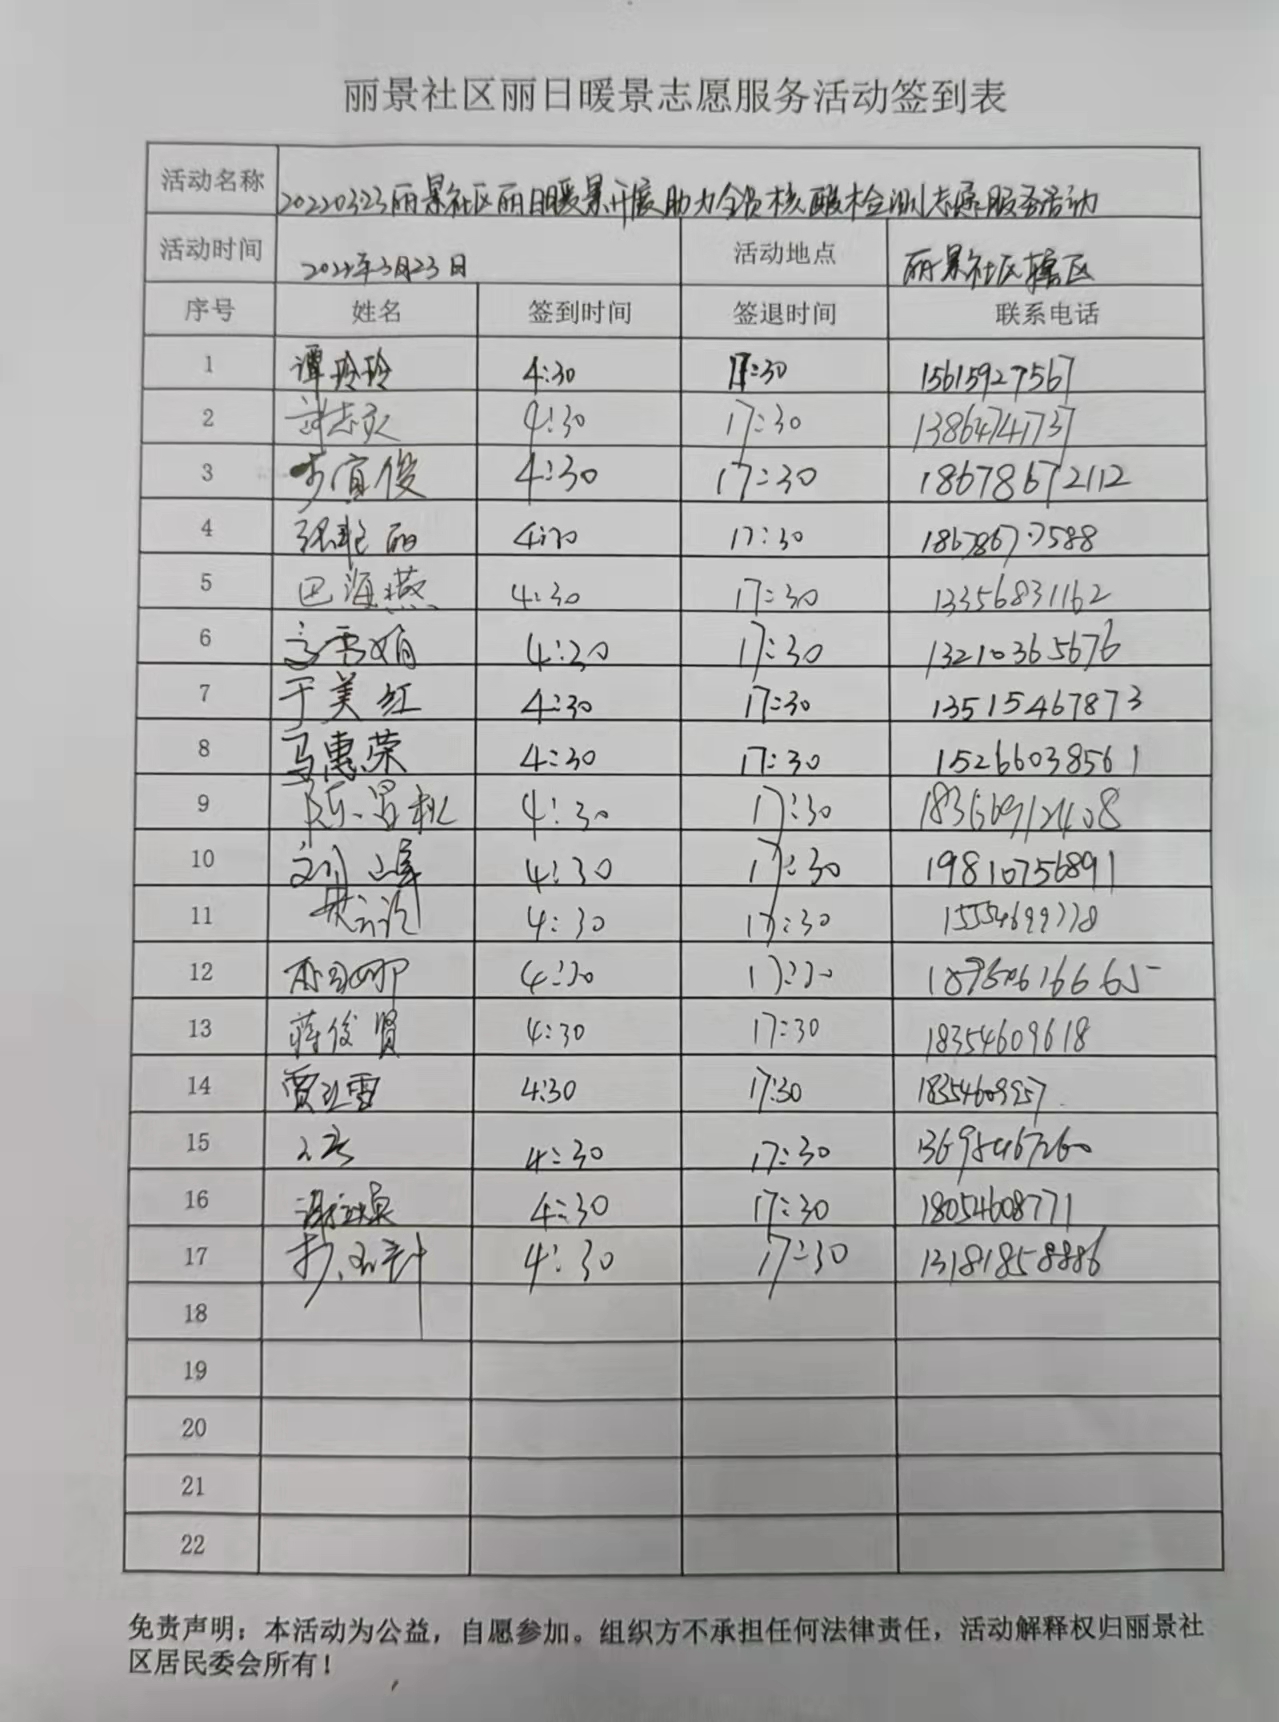 丽景社区丽日暖景志愿服务活动签到表
活动名称 20220323丽景社区丽日暖景开展助力全员核酸检测志愿服务活动
活动时间 2022年3月23日 活动地点 丽景社区辖区
序号 姓名 签到时间 签退时间 联系电话
1 谭玲玲 4:30 17:30 15615927567
2 4:30 17:30 13864741737
3 步宜俊 4:30 17:30 18678672112
4 张艳丽 4:30 17:30
5 巴海燕 4:30 17:30 13356831162
6 4:30 17:30 13210365676
7 于美红 4:30 17:30 13515467873
8 马惠荣 4:30 17:30 15266038561
9 4:30 17:30
10 4:30 17:30 19810756891
11 4:30 17:30
12 4:30 17:30
13 蒋俊贤 4:30 17:30 18354609618
14 4:30 17:30 18354609957
15 4:30 17:30
16 4:30 17:30 18054608771
17 4:30 17:30 13181858886
18
19
20
21
22
免责声明：本活动为公益，自愿参加。组织方不承担任何法律责任，活动解释权归丽景社
区居民委会所有！